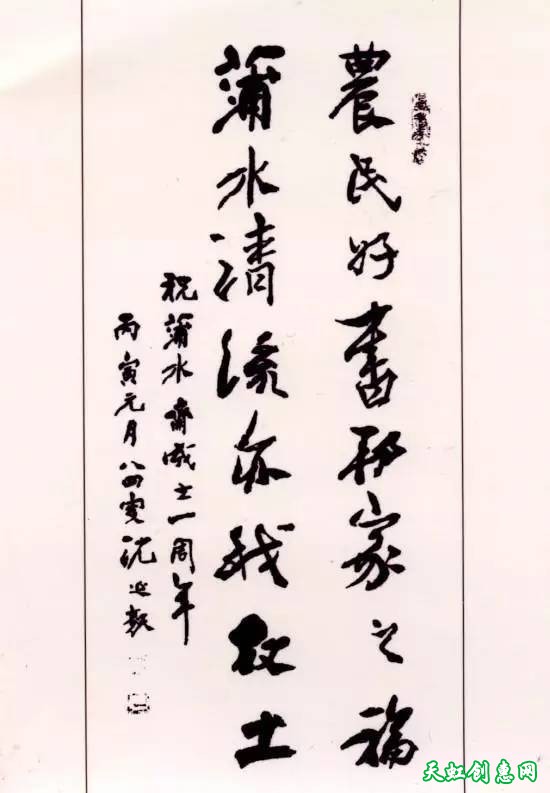 農民好書邦家之福
蒲水清流亦我故土
祝蒲水齋成立一周年
丙寅元月八四叟沈延毅
天虹创意网